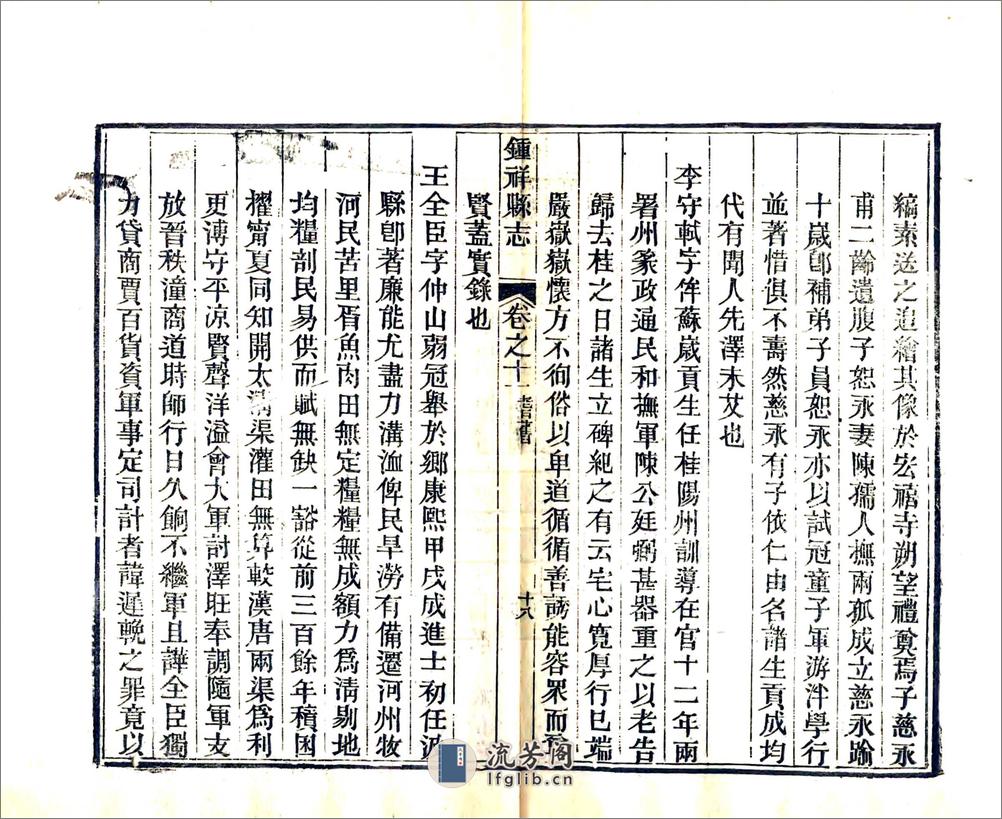 縞素送之追繪其像於宏福寺朔望禮奠焉子慈永
甫二齡遺腹子恕永妻陳孺人撫兩孤成立慈永踰
十歲卽補弟子員恕永亦以試冠童子軍游泮學行
並著惜俱不壽然慈永有子依仁由名諸生貢成均
代有聞人先澤未艾也
李守軾字侔蘇歲貢生任桂陽州訓導在官十二年兩
署州篆政通民和撫軍陳公廷弼甚器重之以老告
歸去桂之日諸生立碑紀之有云宅心寬厚行已端
嚴嶽嶽懷方不徇俗以卑道循循善誘能容眾而
鍾祥縣志
卷之十
耆舊
十八
賢蓋實錄也
王全臣字仲山弱冠舉於鄉康熙甲戌成進士初任
縣卽著廉能尤盡力溝洫俾民旱澇有備遷河州牧
河民苦里胥魚肉田無定糧糧無成額力爲淸剔地
均糧剖民易供而賦無缺一豁從前三百餘年積困
擢甯夏同知開太淸渠灌田無算較漢唐兩渠爲利
更溥守平凉賢聲洋溢會大軍討澤旺奉調隨軍支
放晉秩潼商道時師行日久餉不繼軍且譁全臣獨
力貸商賈百貨資軍事定司計者諱遲輓之罪竟以
流芳閣
lfglib.cn